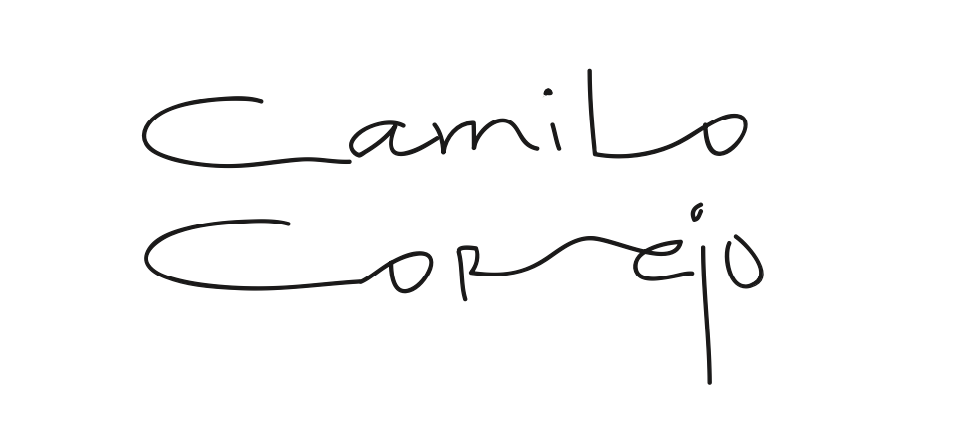 Camilo
Cornejo